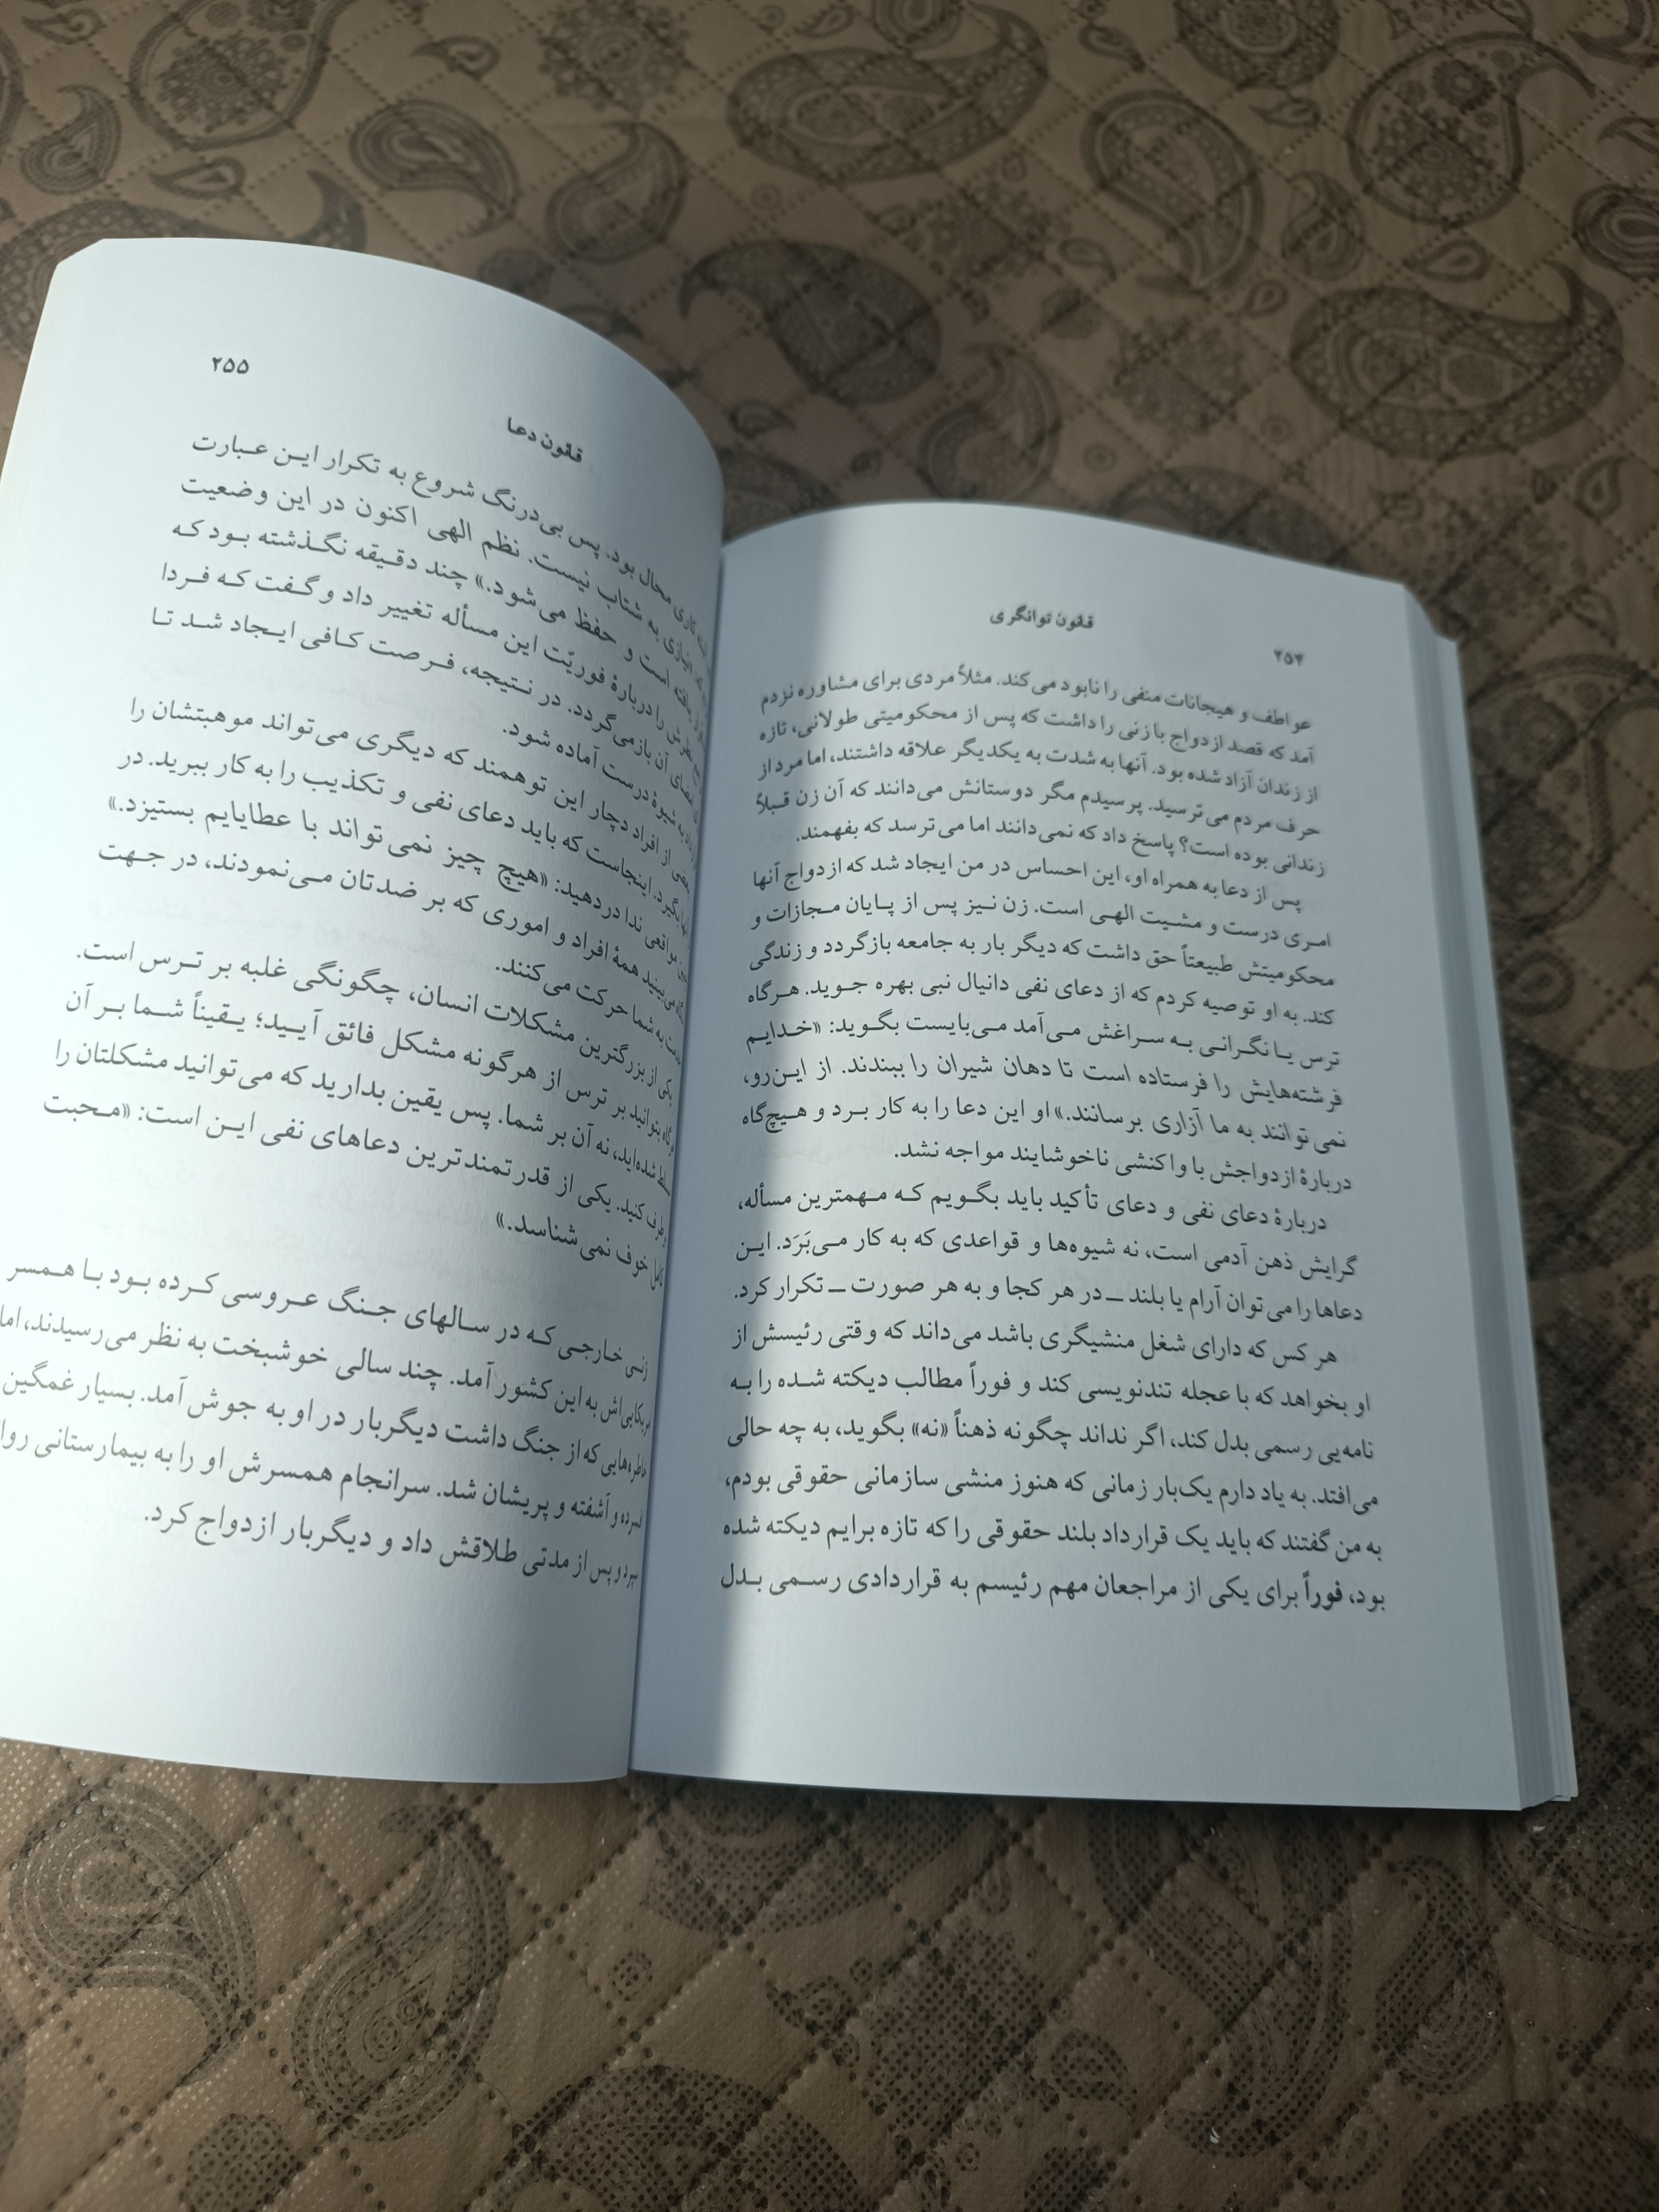 ۲۵۴
قانون توانگری
عواطف و هیجانات منفی را نابود می‌کند. مثلاً مردی برای مشاوره نزدم
آمد که قصد ازدواج با زنی را داشت که پس از محکومیتی طولانی، تازه
از زندان آزاد شده بود. آنها به شدت به یکدیگر علاقه داشتند، اما مرد از
حرف مردم می‌ترسید. پرسیدم مگر دوستانش می‌دانند که آن زن قبلاً
زندانی بوده است؟ پاسخ داد که نمی‌دانند اما می‌ترسد که بفهمند.
پس از دعا به همراه او، این احساس در من ایجاد شد که ازدواج آنها
امری درست و مشیت الهی است. زن نیز پس از پایان مجازات و
محکومیتش طبیعتاً حق داشت که دیگر بار به جامعه بازگردد و زندگی
کند. به او توصیه کردم که از دعای نفی دانیال نبی بهره جوید. هرگاه
ترس یا نگرانی به سراغش می‌آمد می‌بایست بگوید: «خدایم
فرشته‌هایش را فرستاده است تا دهان شیران را ببندند. از این‌رو،
نمی‌توانند به ما آزاری برسانند.» او این دعا را به کار برد و هیچ‌گاه
دربارۀ ازدواجش با واکنشی ناخوشایند مواجه نشد.
دربارۀ دعای نفی و دعای تأکید باید بگویم که مهمترین مسأله،
گرایش ذهن آدمی است، نه شیوه‌ها و قواعدی که به کار می‌بَرَد. این
دعاها را می‌توان آرام یا بلند ــ در هر کجا و به هر صورت ــ تکرار کرد.
هر کس که دارای شغل منشیگری باشد می‌داند که وقتی رئیسش از
او بخواهد که با عجله تندنویسی کند و فوراً مطالب دیکته شده را به
نامه‌یی رسمی بدل کند، اگر نداند چگونه ذهناً «نه» بگوید، به چه حالی
می‌افتد. به یاد دارم یک‌بار زمانی که هنوز منشی سازمانی حقوقی بودم،
به من گفتند که باید یک قرارداد بلند حقوقی را که تازه برایم دیکته شده
بود، فوراً برای یکی از مراجعان مهم رئیسم به قراردادی رسمی بدل
۲۵۵
قانون دعا
کاری محال بود. پس بی‌درنگ شروع به تکرار این عبارت
به شتاب نیست. نظم الهی اکنون در این وضعیت
است و حفظ می‌شود.» چند دقیقه نگذشته بود که
را دربارۀ فوریّت این مسأله تغییر داد و گفت که فردا
آن بازمی‌گردد. در نتیجه، فرصت کافی ایجاد شد تا
به شیوۀ درست آماده شود.
از افراد دچار این توهمند که دیگری می‌تواند موهبتشان را
بگیرد. اینجاست که باید دعای نفی و تکذیب را به کار ببرید. در
مواقعی ندا دردهید: «هیچ چیز نمی‌تواند با عطایایم بستیزد.»
می‌بینید همۀ افراد و اموری که بر ضدتان می‌نمودند، در جهت
به شما حرکت می‌کنند.
یکی از بزرگترین مشکلات انسان، چگونگی غلبه بر ترس است.
بتوانید بر ترس از هرگونه مشکل فائق آیید؛ یقیناً شما بر آن
شده‌اید، نه آن بر شما. پس یقین بدارید که می‌توانید مشکلتان را
کنید. یکی از قدرتمندترین دعاهای نفی این است: «محبت
کامل خوف نمی‌شناسد.»
زنی خارجی که در سالهای جنگ عروسی کرده بود با همسر
به این کشور آمد. چند سالی خوشبخت به نظر می‌رسیدند، اما
که از جنگ داشت دیگربار در او به جوش آمد. بسیار غمگین
و آشفته و پریشان شد. سرانجام همسرش او را به بیمارستانی
و پس از مدتی طلاقش داد و دیگربار ازدواج کرد.